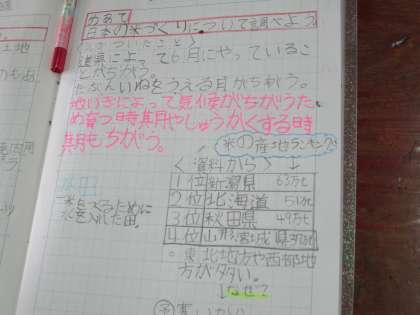 めあて
日本の米づくりについて調べよう
気づいたこと
道県によって6月にやっているこ
とがちがう。
たぶんいねをうえる月がちがう。
地いきによって気候がちがうた
め育つ時期やしゅうかくする時
期もちがう。
米の産地ランキング
<資料から>
水田
米をつくるために
水を入れた田。
1位 新潟県 63万t
2位 北海道 51万t
3位 秋田県 49万t
4位 山形宮城県
・東北地方や西部地
方が多い。
なぜ?
予